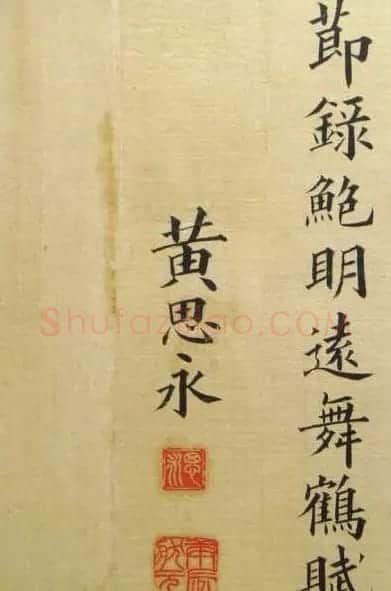 節錄鮑明遠舞鶴賦
黃思永
思永
Shufazidao.COM